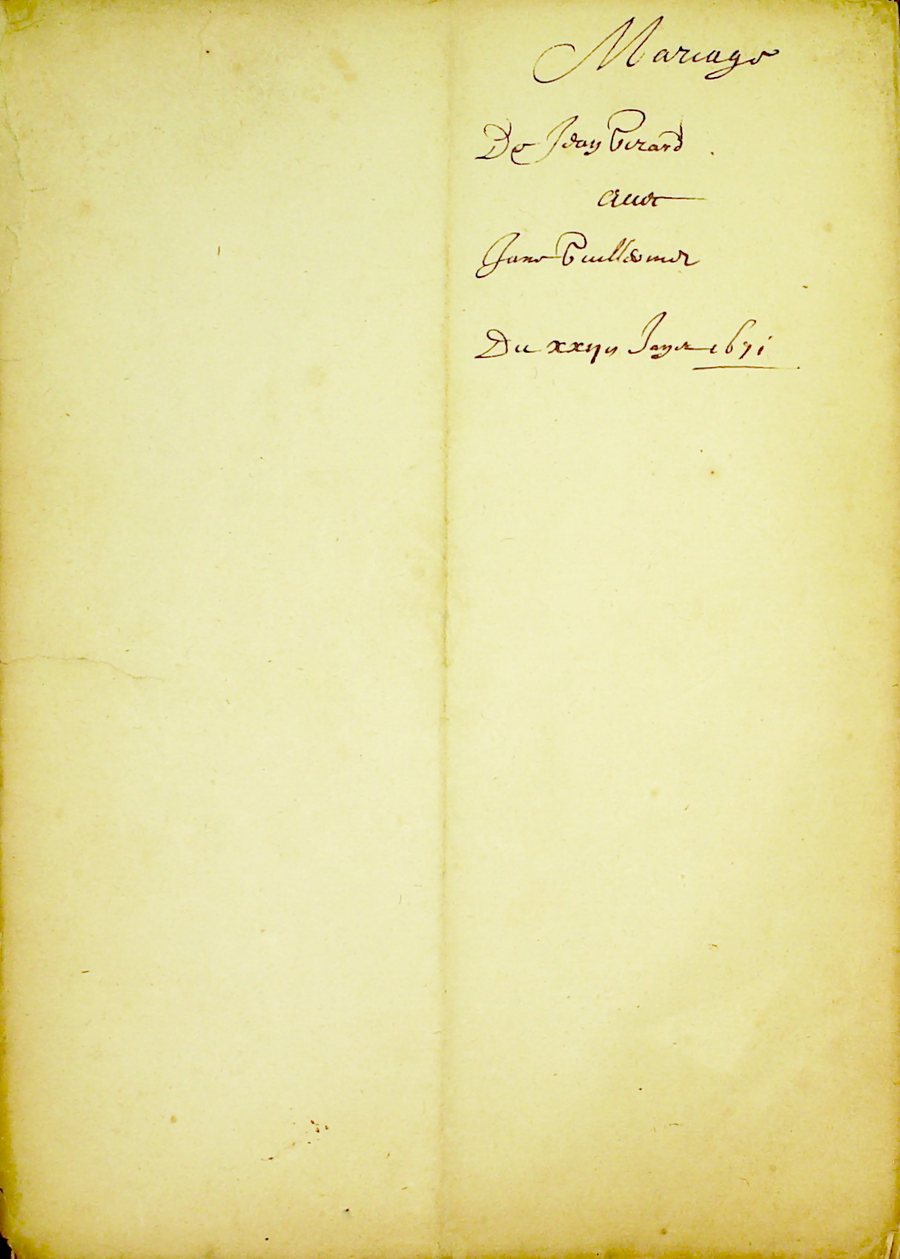 Mariage
De Jean Girard
avec
Jane Guillemer
Du xxvij Janvier 1671